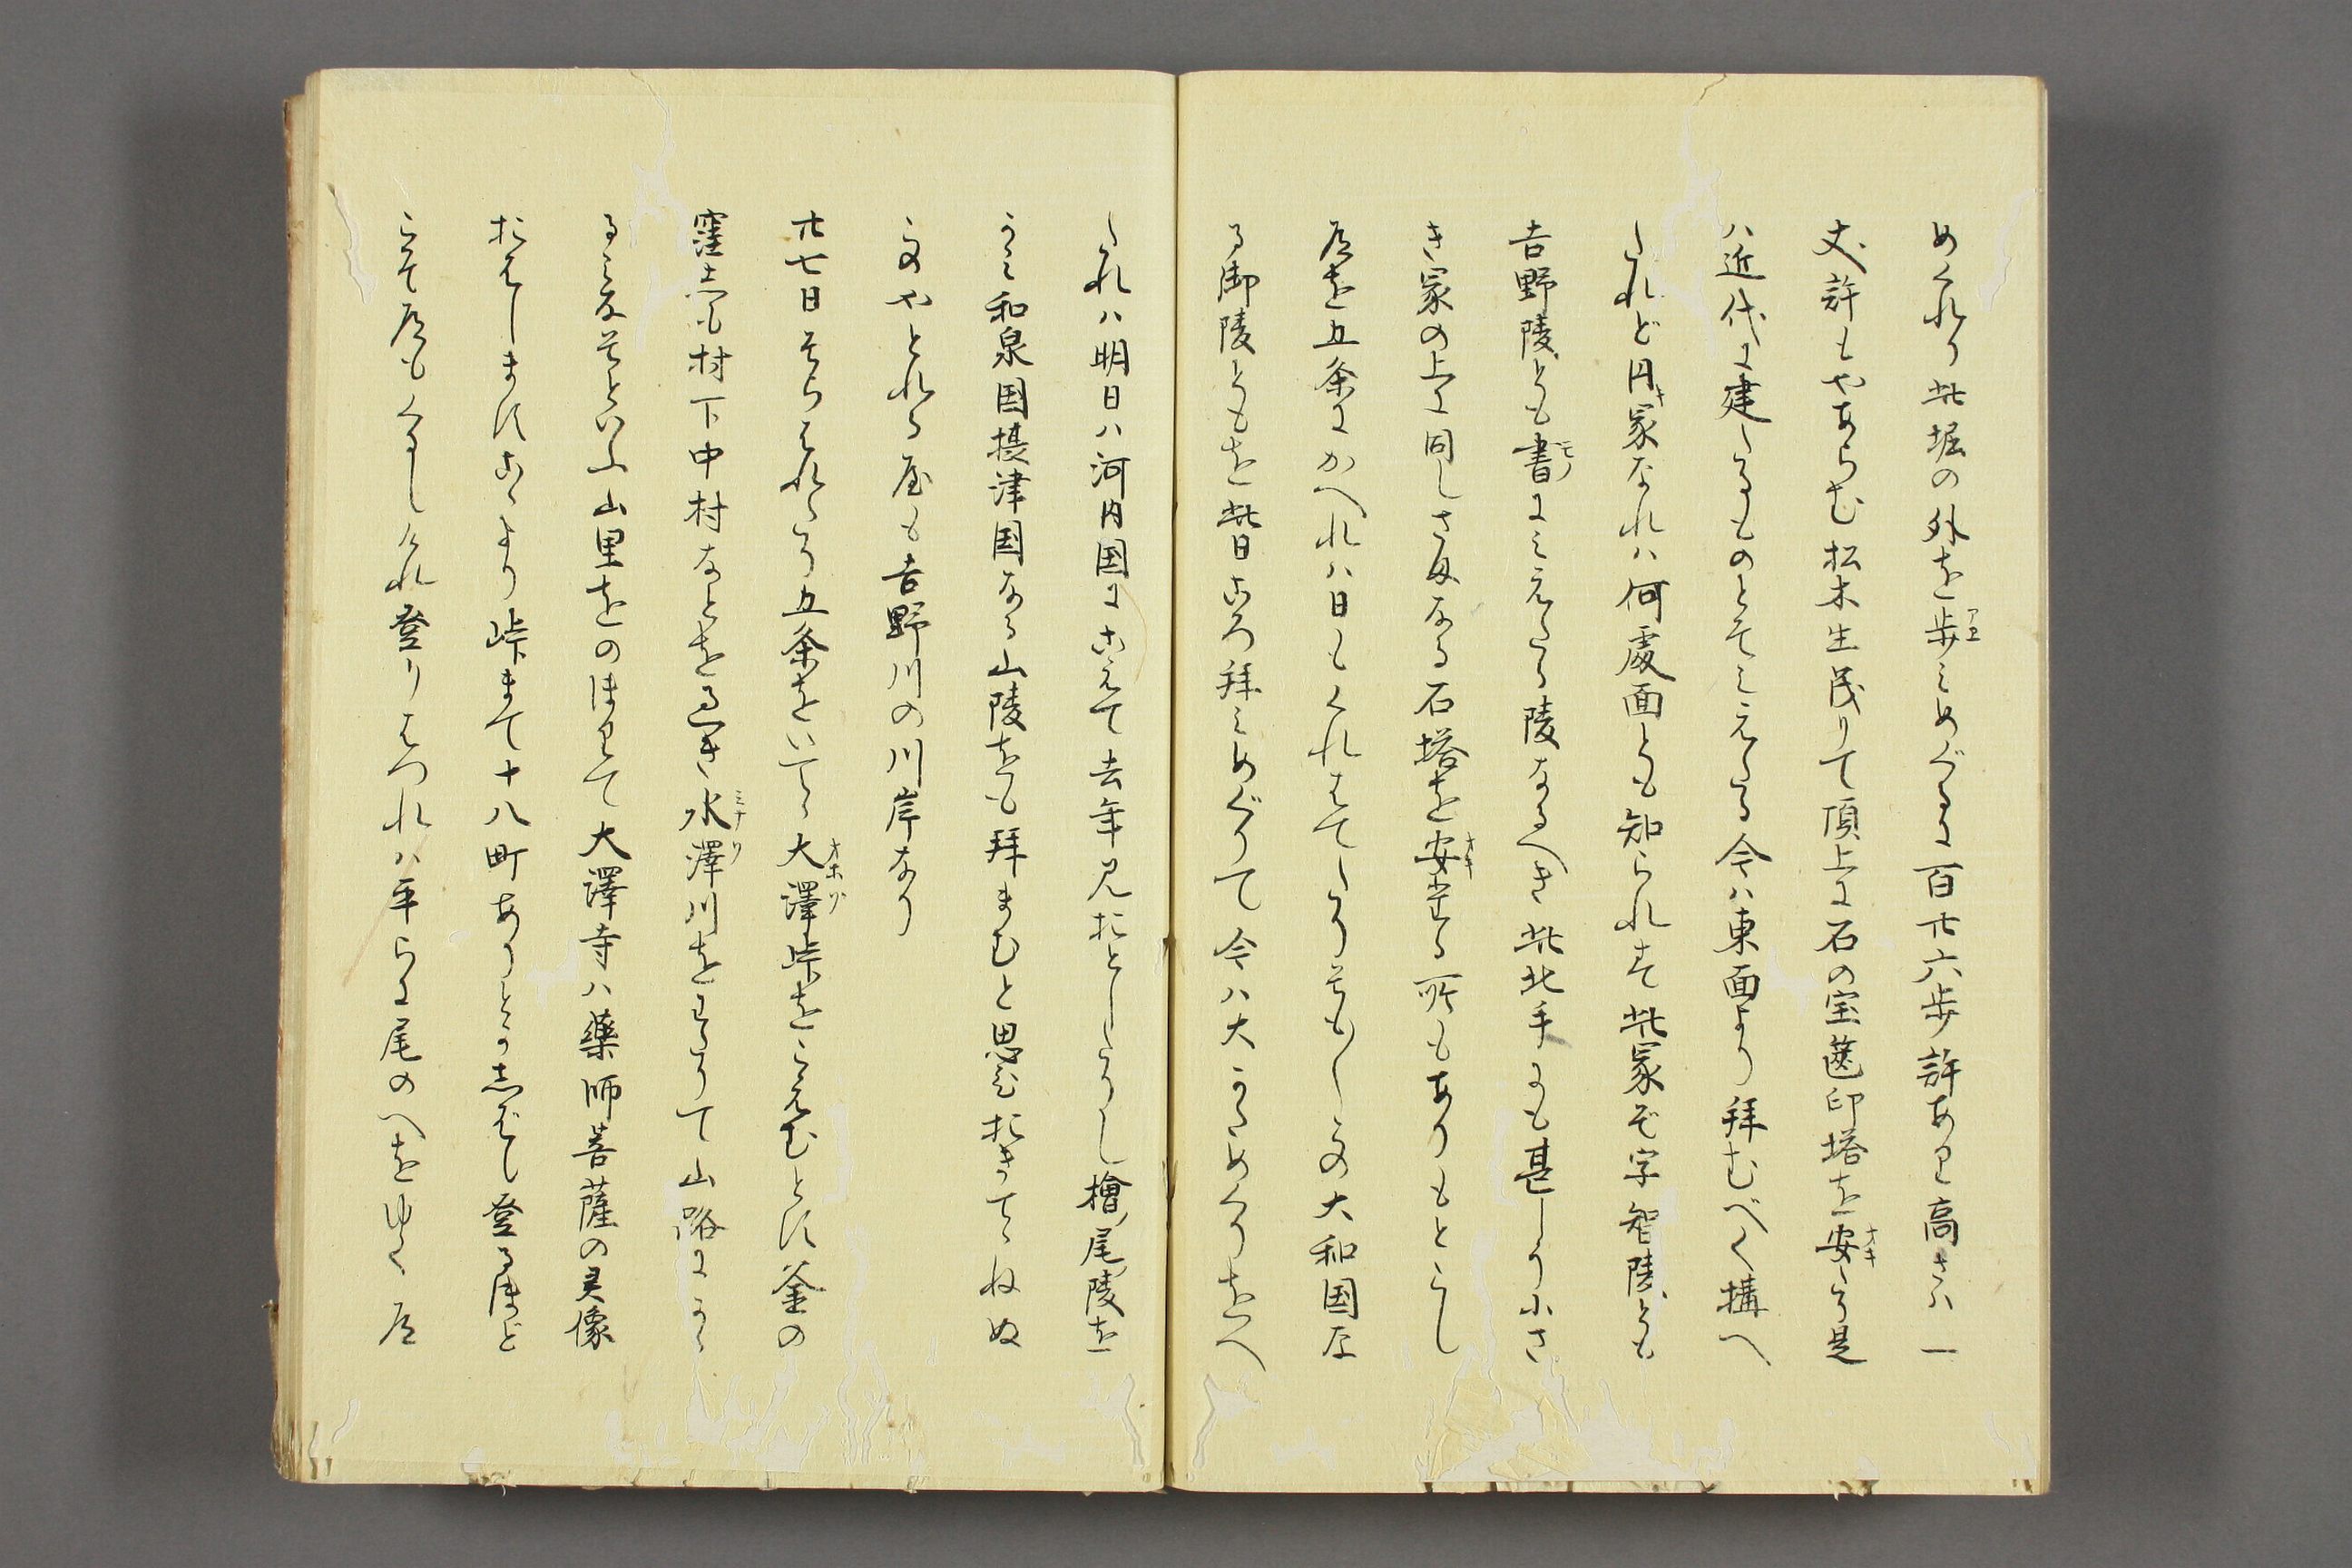 めくれり此堀の外を歩アユミめくるに百廿六歩許あり高さハ一
丈許もやあらむ松木生茂りて頂上に石の宝篋印塔を安オキたり是
ハ近代に建たるものとそみえたる今ハ東面より拝むべく搆へ
たれど円キ冢なれハ何處面とも知られす此冢ぞ宇智陵とも
吉野陵とも書モノにみえたる陵なるへき此北手にも甚しう小さ
き冢の上に同しさまなる石塔を安オキたる所もありもとこし
道を五条にかへれハ日もくれはてたりそも〳〵この大和国な
る御陵ともを此日ころ拝みめぐりて今ハ大かためくりをへ
たれハ明日ハ河内国にこえて去年見おとしたりし檜尾陵を
かミ和泉国摂津国なる山陵をも拝まむと思ひおきてゝねぬ
このやとれる屋も吉野川の川岸なり
廿七日そらはれたり五条をいてゝ大澤オホサハ峠をこえむとす釜の
窪志も村下中村なとを過き水澤川をわたりて山路にかゝ
るミなそといふ山里をのほりて大澤寺ハ藥師菩薩の灵像
おはしますこゝより峠まて十八町ありとか志ばし登るほど
こそ道もくるしけれ登りはつれハ平らに尾のへをゆく道